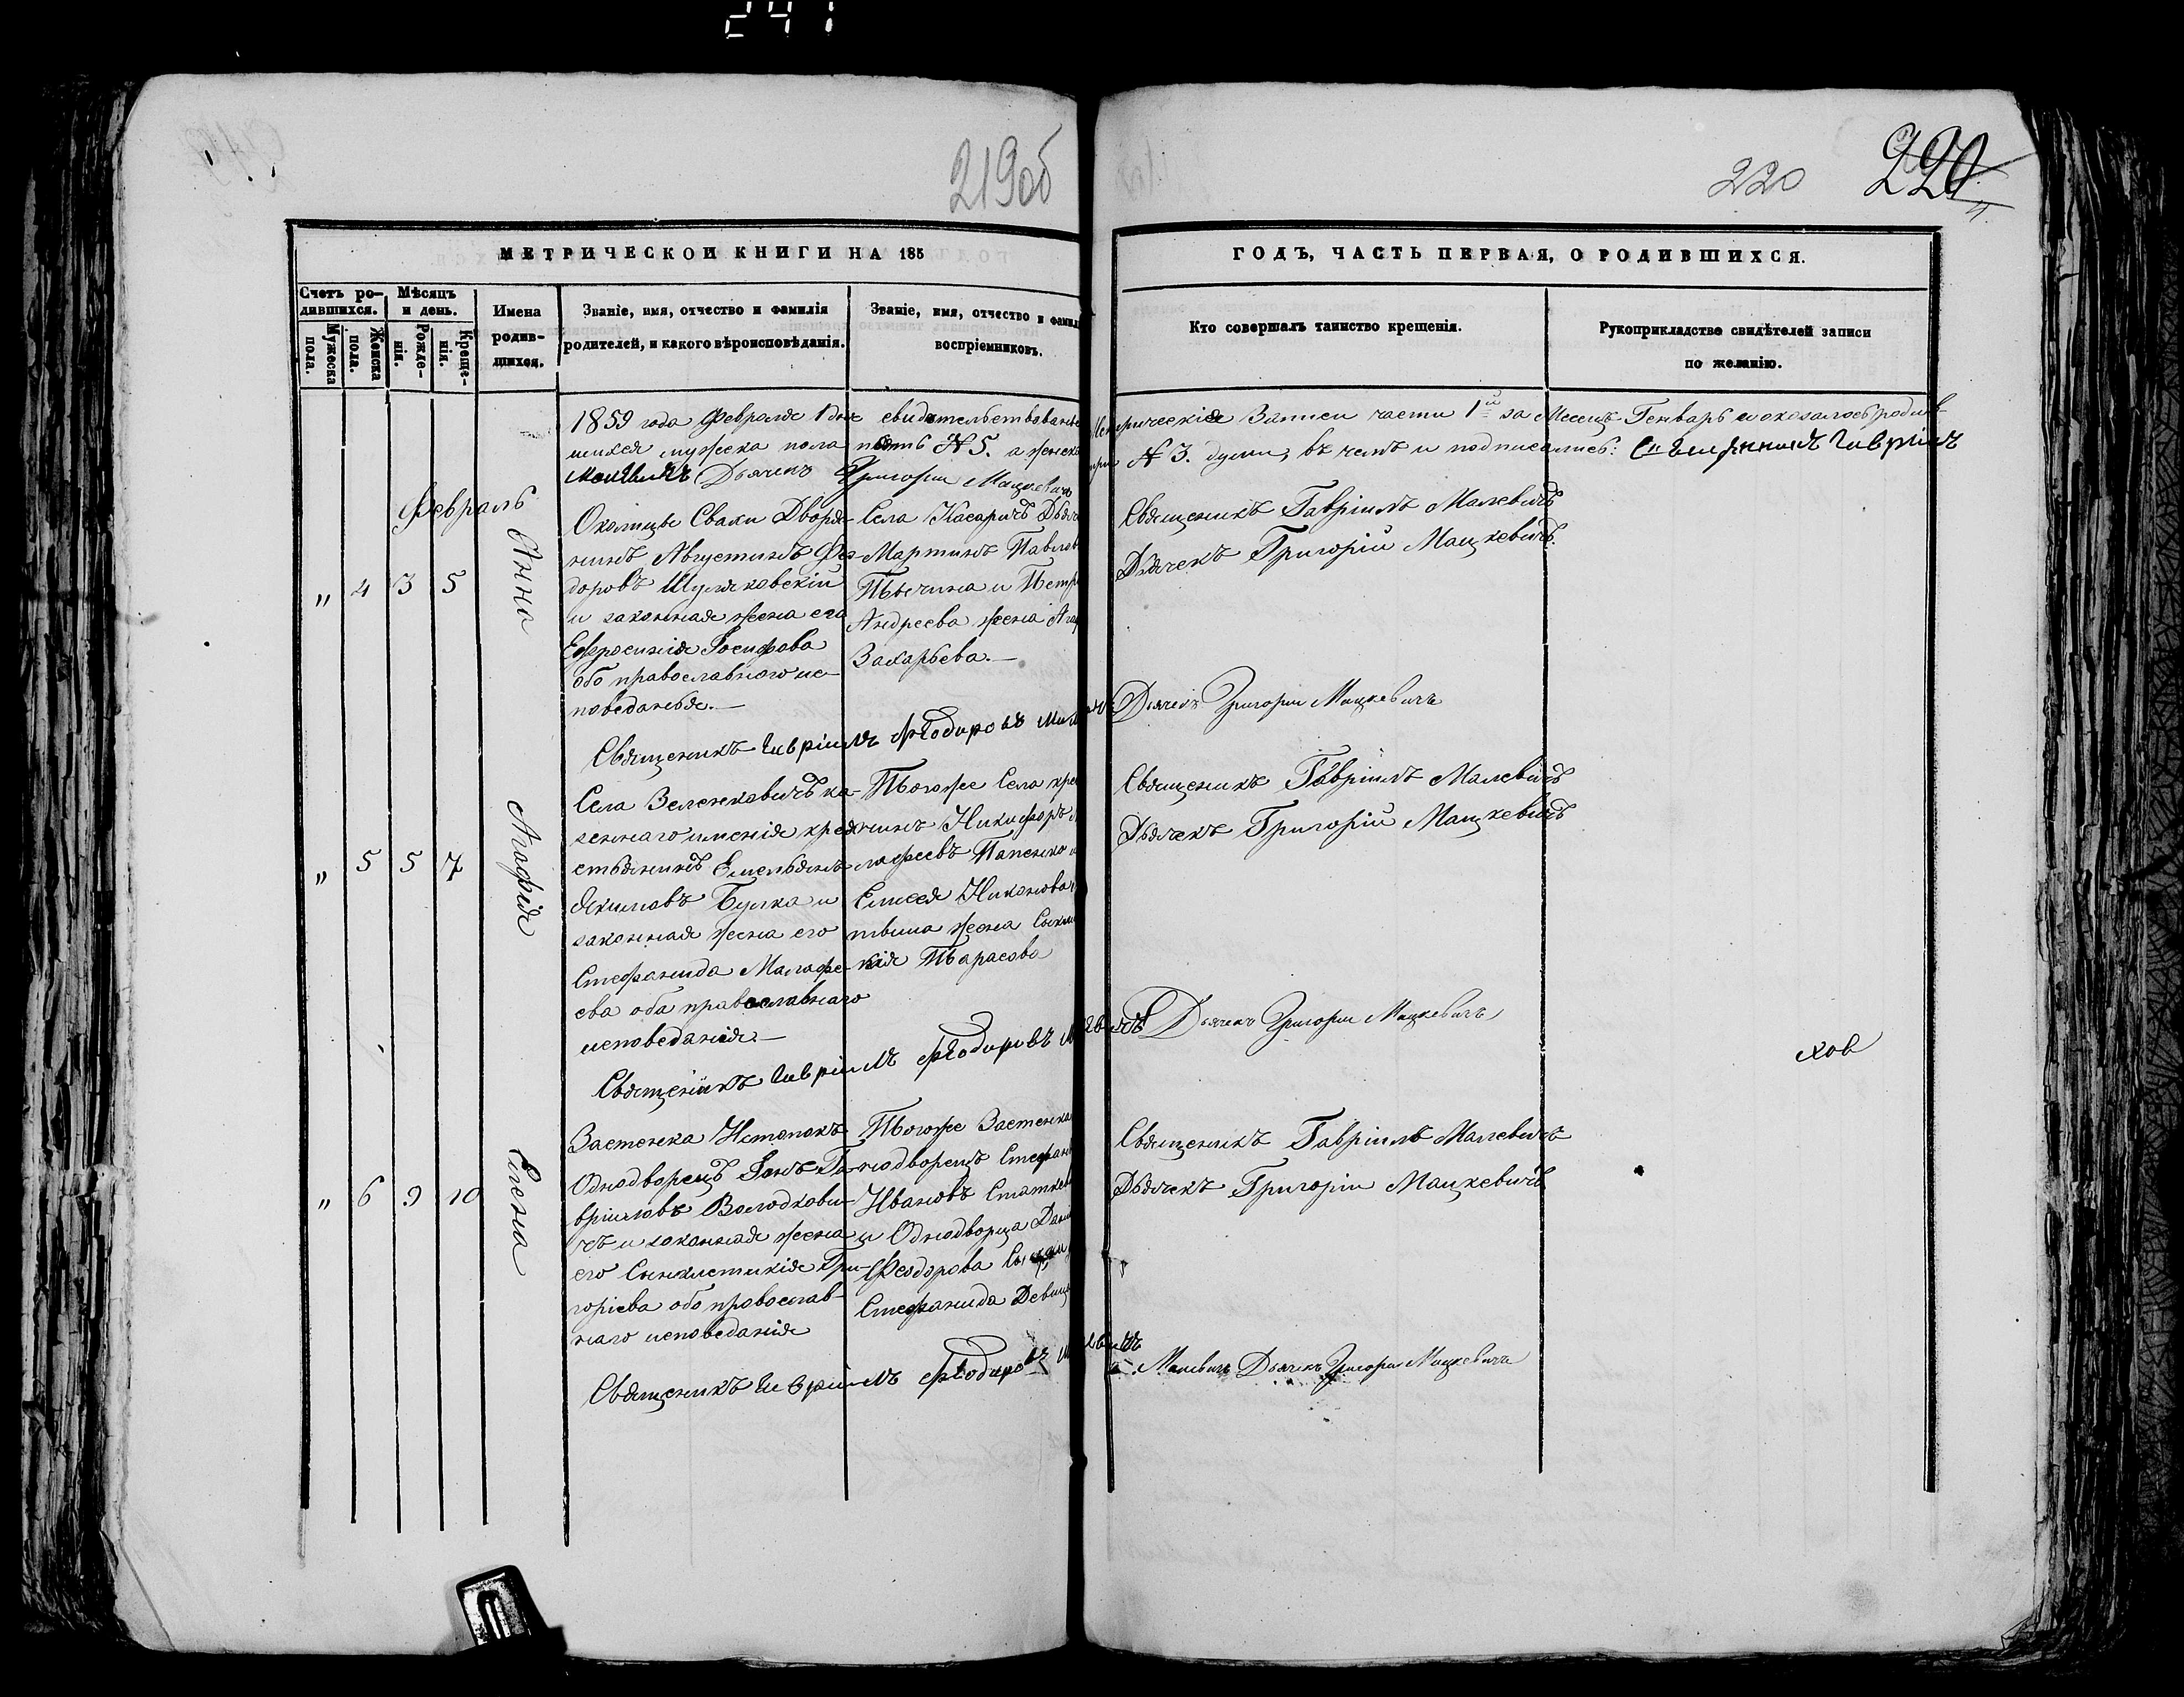 241
219об
220
220
МЕТРИЧЕСКОЙ КНИГИ НА 185
ГОДЪ, ЧАСТЬ ПЕРВАЯ, О РОДИВШИХСЯ.
Счетъ ро-
дившихся.
Мѣсяцъ
и день.
Мужеска
пола.
Женска
пола.
Рожде-
нія.
Креще-
нія.
Имена
родив-
шихся.
Званіе, имя, отчество и фамилія
родителей, и какого вѣроисповѣданія.
Званіе, имя, отчество и фамил
воспріемниковъ.
Кто совершалъ таинство крещенія.
Рукоприкладство свидѣтелей записи
по желанію.
1859 года Февраля 1 дня свидѣтельствованы Метрическія Записи части 1й за Месецъ Генварь и оказалось родив-
шихся мужеска пола пять № 5. а женска три № 3. души, въ чемъ и подписались: Гавріилъ
Малевичъ Дьячекъ Григорій Мацкевичъ
Февраль
" 4 3 5
Анна
Околицы Сваки Дворя-
нинъ Августинъ Фео-
доровъ Шуляковскій
и законная жена его
Ефросинія Іосифова
оба православного ис-
поведанья.—
Села Касаричъ Дьяч
Мартинъ Павлов
Тычина и Петр
Андреева жена Ага
Захарьева.—
Священникъ Гавріилъ Малевичъ
Дьячекъ Григорій Мацкевичъ.
Священикъ Гавріилъ Феодоровъ Малевичъ Дьячекъ Григорій Мацкевичъ
" 5 5 7
Агафія
Села Зеленковичъ ка-
зеннаго имѣнія кре-
стьянинъ Емельянъ
Якимовъ Булка и
законная жена его
Стефанида Малафе-
ева оба православнаго
исповеданія.—
Тогоже Села кре
янинъ Никифоръ
лафеевъ Папенко и
Елисея Никонова
жена
кія Тарасова
Священикъ Гавріилъ Малевичъ
Дьячекъ Григорій Мацкевичъ
Священикъ Гавріилъ Феодоровъ Малевичъ Дьячекъ Григорій Мацкевичъ
" 6 9 10
Елена
Застенка
Однодворецъ Іанъ Га-
вріиловъ Володкови-
чъ и законная жена
его Синклетикія Гри-
горіева оба православ-
наго исповеданія
Тогоже Застенка
нодворецъ Стефан
Ивановъ Статкев
и Однодворца Дани
Феодорова
Стефанида Девиц
Священикъ Гавріилъ Малевичъ
Дьячекъ Григорій Мацкевичъ
Священикъ Гавріилъ Феодоровъ Малевичъ Дьячекъ Григорій Мацкевичъ